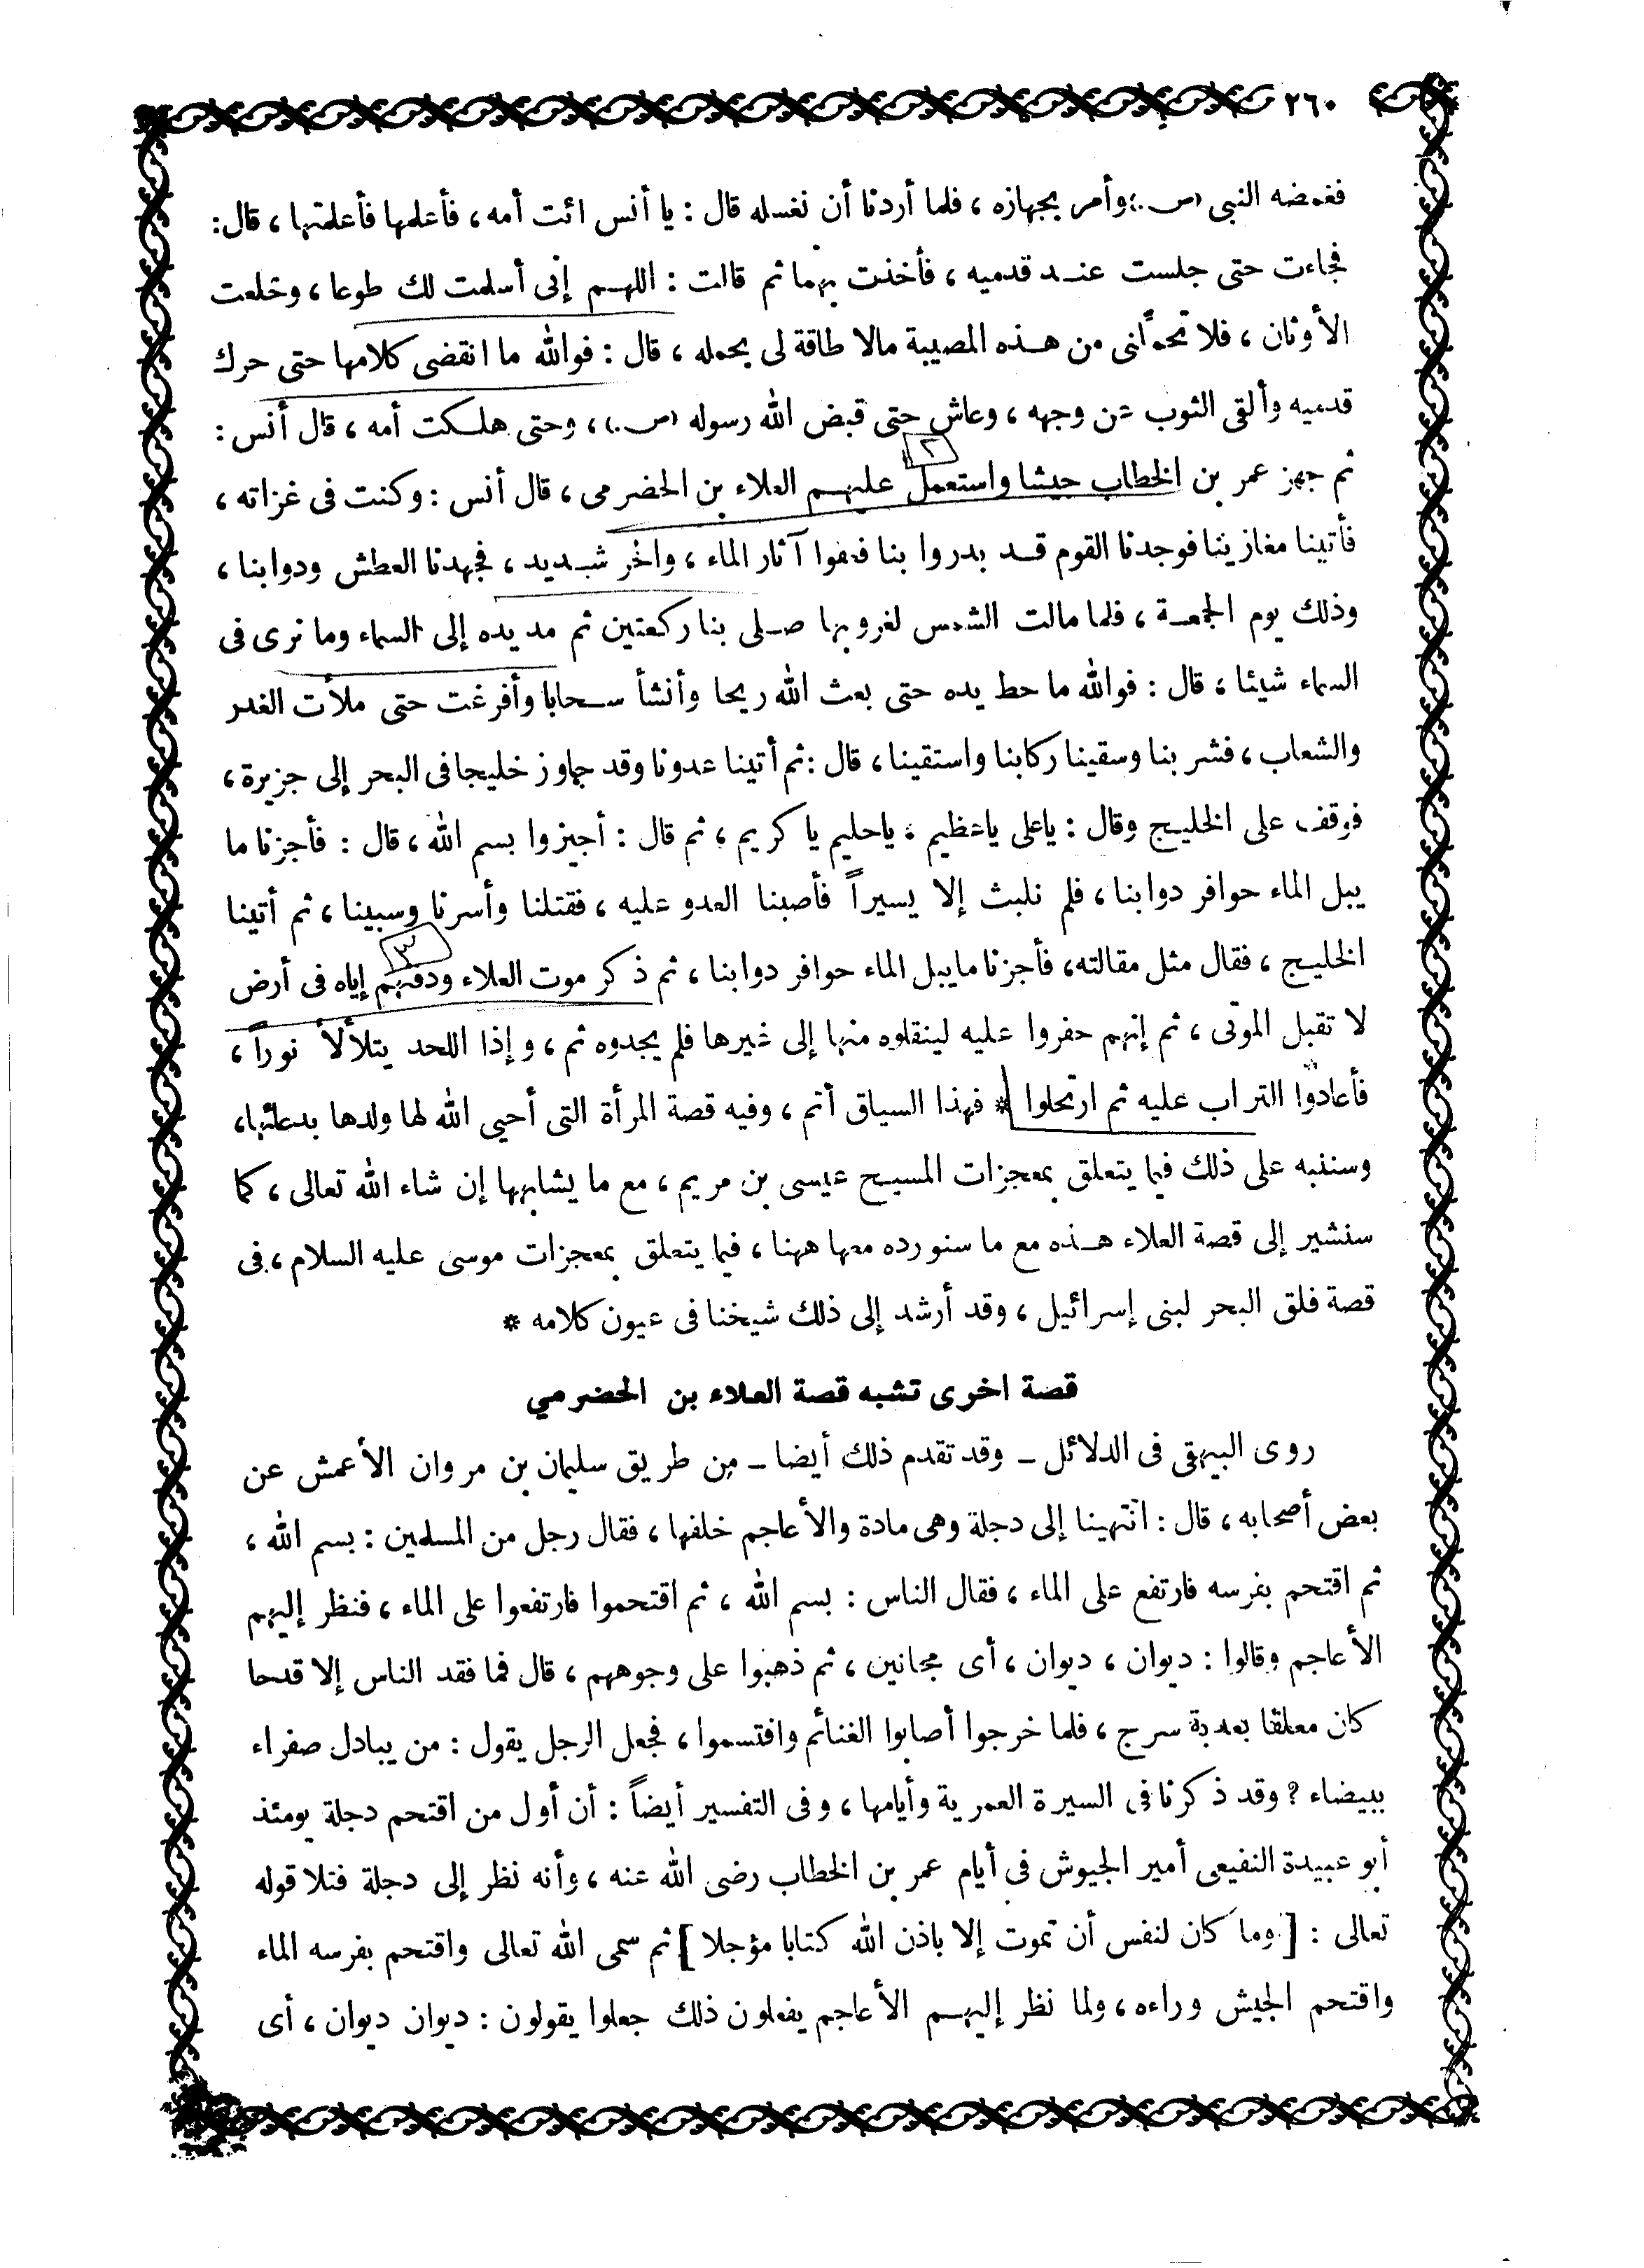 ٢٦٠
فغمضه النبى (ص.) وأمر بجهازه ، فلما أردنا أن نغسله قال : يا أنس ائت أمه ، فأعلمها فأعلمتها ، قال :
فجاءت حتى جلست عند قدميه ، فأخذت بهما ثم قالت : اللهم إنى أسلمت لك طوعا ، وخلعت
الأوثان ، فلا تحملنى من هذه المصيبة مالا طاقة لى بحمله ، قال : فوالله ما انقضى كلامها حتى حرك
قدميه وألقى الثوب عن وجهه ، وعاش حتى قبض الله رسوله (ص.) ، وحتى هلكت أمه ، قال أنس :
٢
ثم جهز عمر بن الخطاب جيشا واستعمل عليهم العلاء بن الحضرمى ، قال أنس : وكنت فى غزاته ،
فأتينا مغازينا فوجدنا القوم قد بدروا بنا فعفوا آثار الماء ، والحر شديد ، فجهدنا العطش ودوابنا ،
وذلك يوم الجمعة ، فلما مالت الشمس لغروبها صلى بنا ركعتين ثم مد يده إلى السماء وما نرى فى
السماء شيئا ، قال : فوالله ما حط يده حتى بعث الله ريحا وأنشأ سحابا وأفرغت حتى ملأت الغدر
والشعاب ، فشربنا وسقينا ركابنا واستقينا ، قال : ثم أتينا عدونا وقد جاوز خليجا فى البحر إلى جزيرة ،
فوقف على الخليج وقال : ياعلى ياعظيم ، ياحليم يا كريم ، ثم قال : أجيزوا بسم الله ، قال : فأجزنا ما
يبل الماء حوافر دوابنا ، فلم نلبث إلا يسيراً فأصبنا العدو عليه ، فقتلنا وأسرنا وسبينا ، ثم أتينا
٣
الخليج ، فقال مثل مقالته ، فأجزنا مايبل الماء حوافر دوابنا ، ثم ذكر موت العلاء ودفنهم إياه فى أرض
لا تقبل الموتى ، ثم إنهم حفروا عليه لينقلوه منها إلى غيرها فلم يجدوه ثم ، وإذا اللحد يتلألأ نوراً ،
فأعادوا التراب عليه ثم ارتحلوا * فهذا السياق أتم ، وفيه قصة المرأة التى أحيى الله لها ولدها بدعائها ،
وسننبه على ذلك فيما يتعلق بمعجزات المسيح عيسى بن مريم ، مع ما يشابهها إن شاء الله تعالى ، كما
سنشير إلى قصة العلاء هذه مع ما سنورده معها ههنا ، فيما يتعلق بمعجزات موسى عليه السلام ، فى
قصة فلق البحر لبنى إسرائيل ، وقد أرشد إلى ذلك شيخنا فى عيون كلامه *
قصة اخرى تشبه قصة العلاء بن الحضرمي
روى البيهقى فى الدلائل – وقد تقدم ذلك أيضا – من طريق سليمان بن مروان الأعمش عن
بعض أصحابه ، قال : انتهينا إلى دجلة وهى مادة والأعاجم خلفها ، فقال رجل من المسلمين : بسم الله ،
ثم اقتحم بفرسه فارتفع على الماء ، فقال الناس : بسم الله ، ثم اقتحموا فارتفعوا على الماء ، فنظر إليهم
الأعاجم وقالوا : ديوان ، ديوان ، أى مجانين ، ثم ذهبوا على وجوههم ، قال فما فقد الناس إلا قدحا
كان معلقا بعذبة سرج ، فلما خرجوا أصابوا الغنائم وافتسموا ، فجعل الرجل يقول : من يبادل صفراء
ببيضاء ? وقد ذكرنا فى السيرة العمرية وأيامها ، وفى التفسير أيضاً : أن أول من اقتحم دجلة يومئذ
أبو عبيدة النفيعى أمير الجيوش فى أيام عمر بن الخطاب رضى الله عنه ، وأنه نظر إلى دجلة فتلا قوله
تعالى : [ وما كان لنفس أن تموت إلا باذن الله كتابا مؤجلا ] ثم سمى الله تعالى واقتحم بفرسه الماء
واقتحم الجيش وراءه ، ولما نظر إليهم الأعاجم يفعلون ذلك جعلوا يقولون : ديوان ديوان ، أى